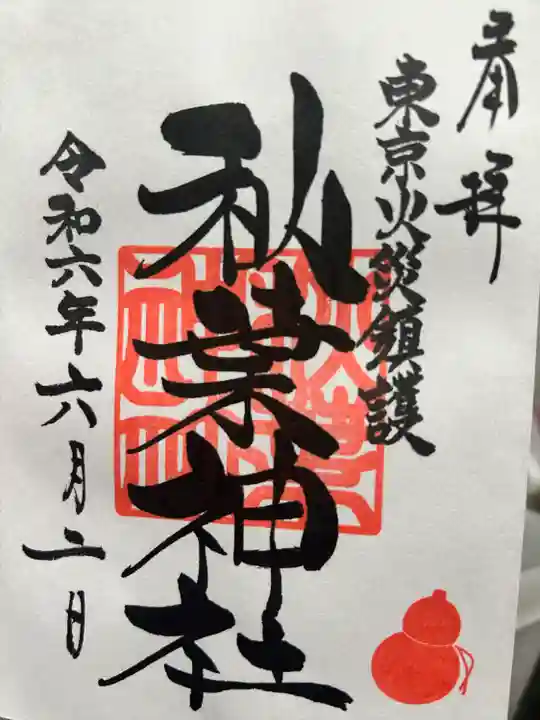 奉拝
東京火災鎮護
秋葉神社
令和六年六月二日